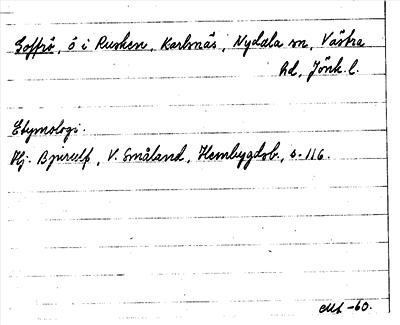 Soffrö, ö i Rusken, Karlsnäs, Nydala sn, Västra
hd, Jönk. l.
Etymologi.
Hj. Bjurulf, V. Småland, Hembygdsb., s. 116.
-60.